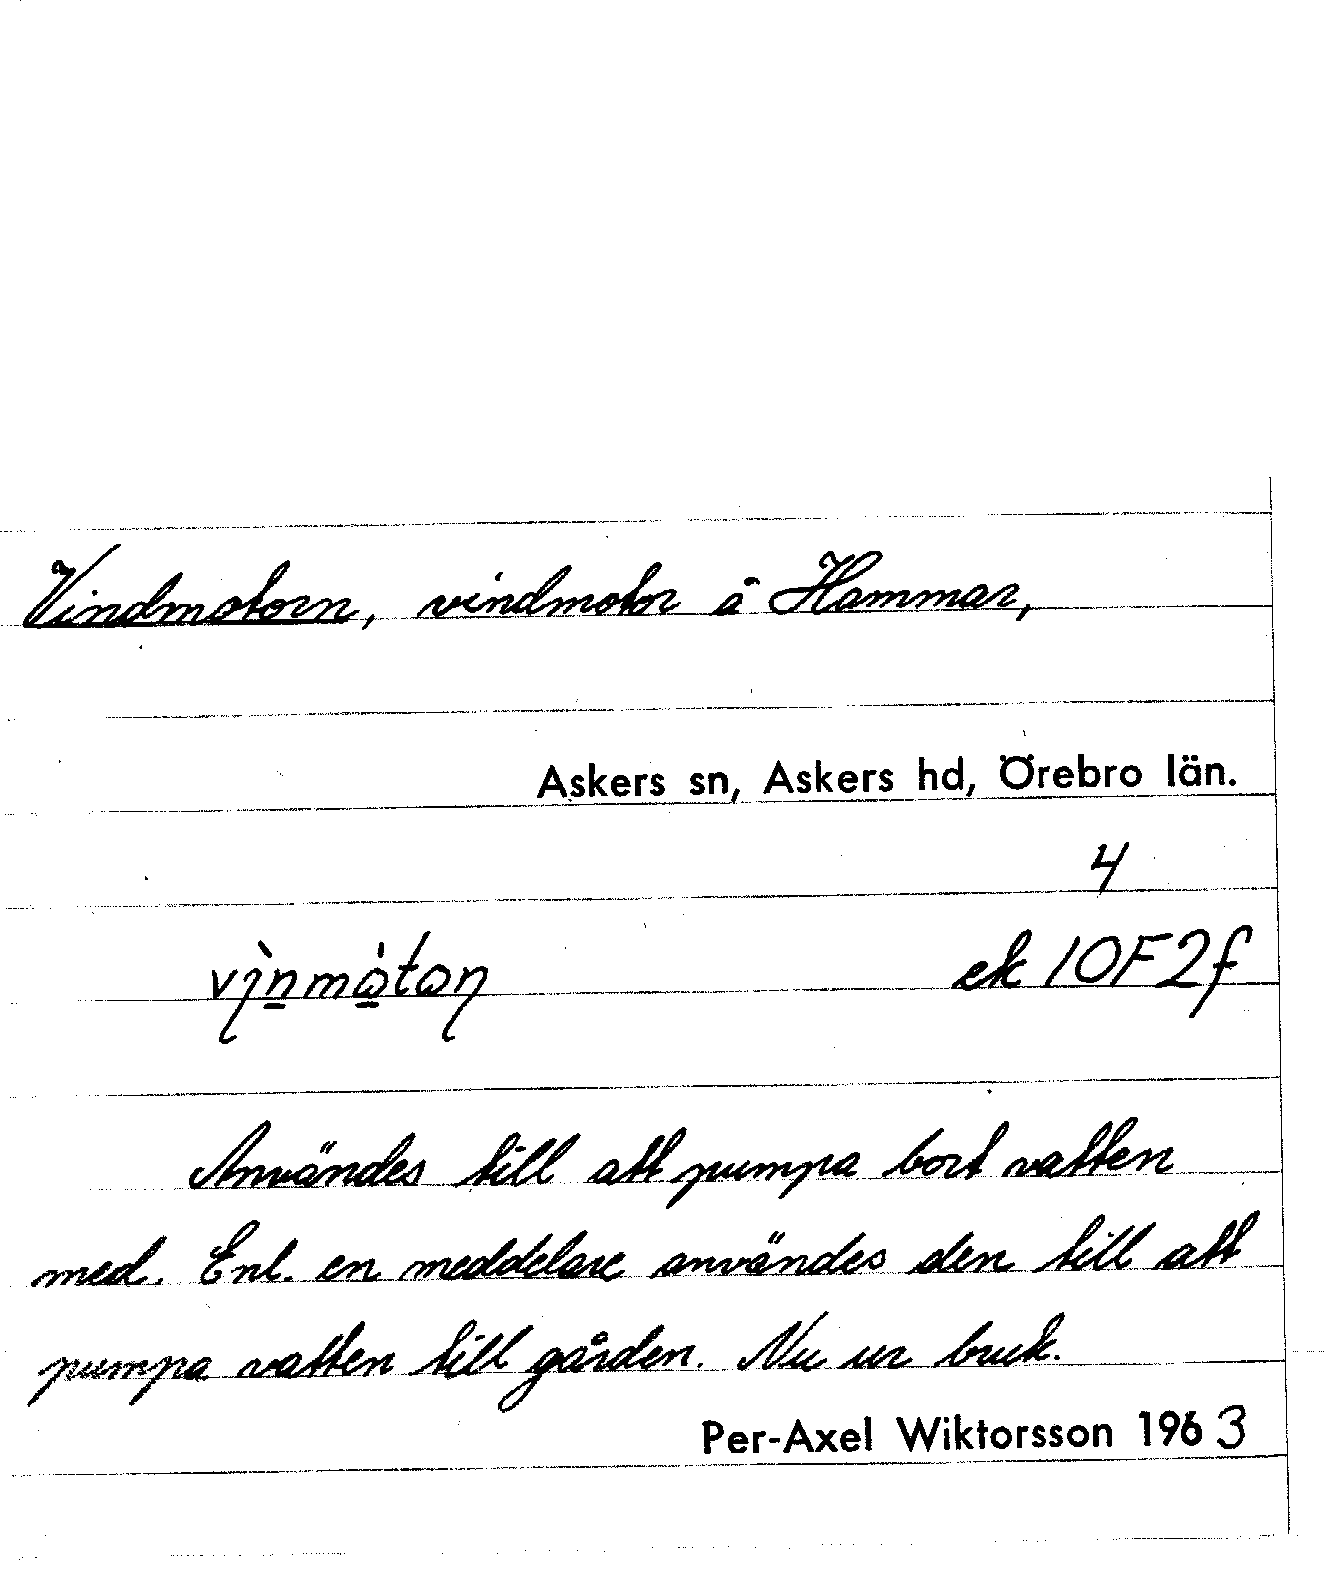 Vindmotorn, vindmotor å Hammar,
Askers sn, Askers hd, Örebro län.
4
ek 10F2f
Användes till att pumpa bort vatten
med. Enl. en meddelare användes den till att
pumpa vatten till gården. Nu ur bruk.
Per-Axel Wiktorsson 1963